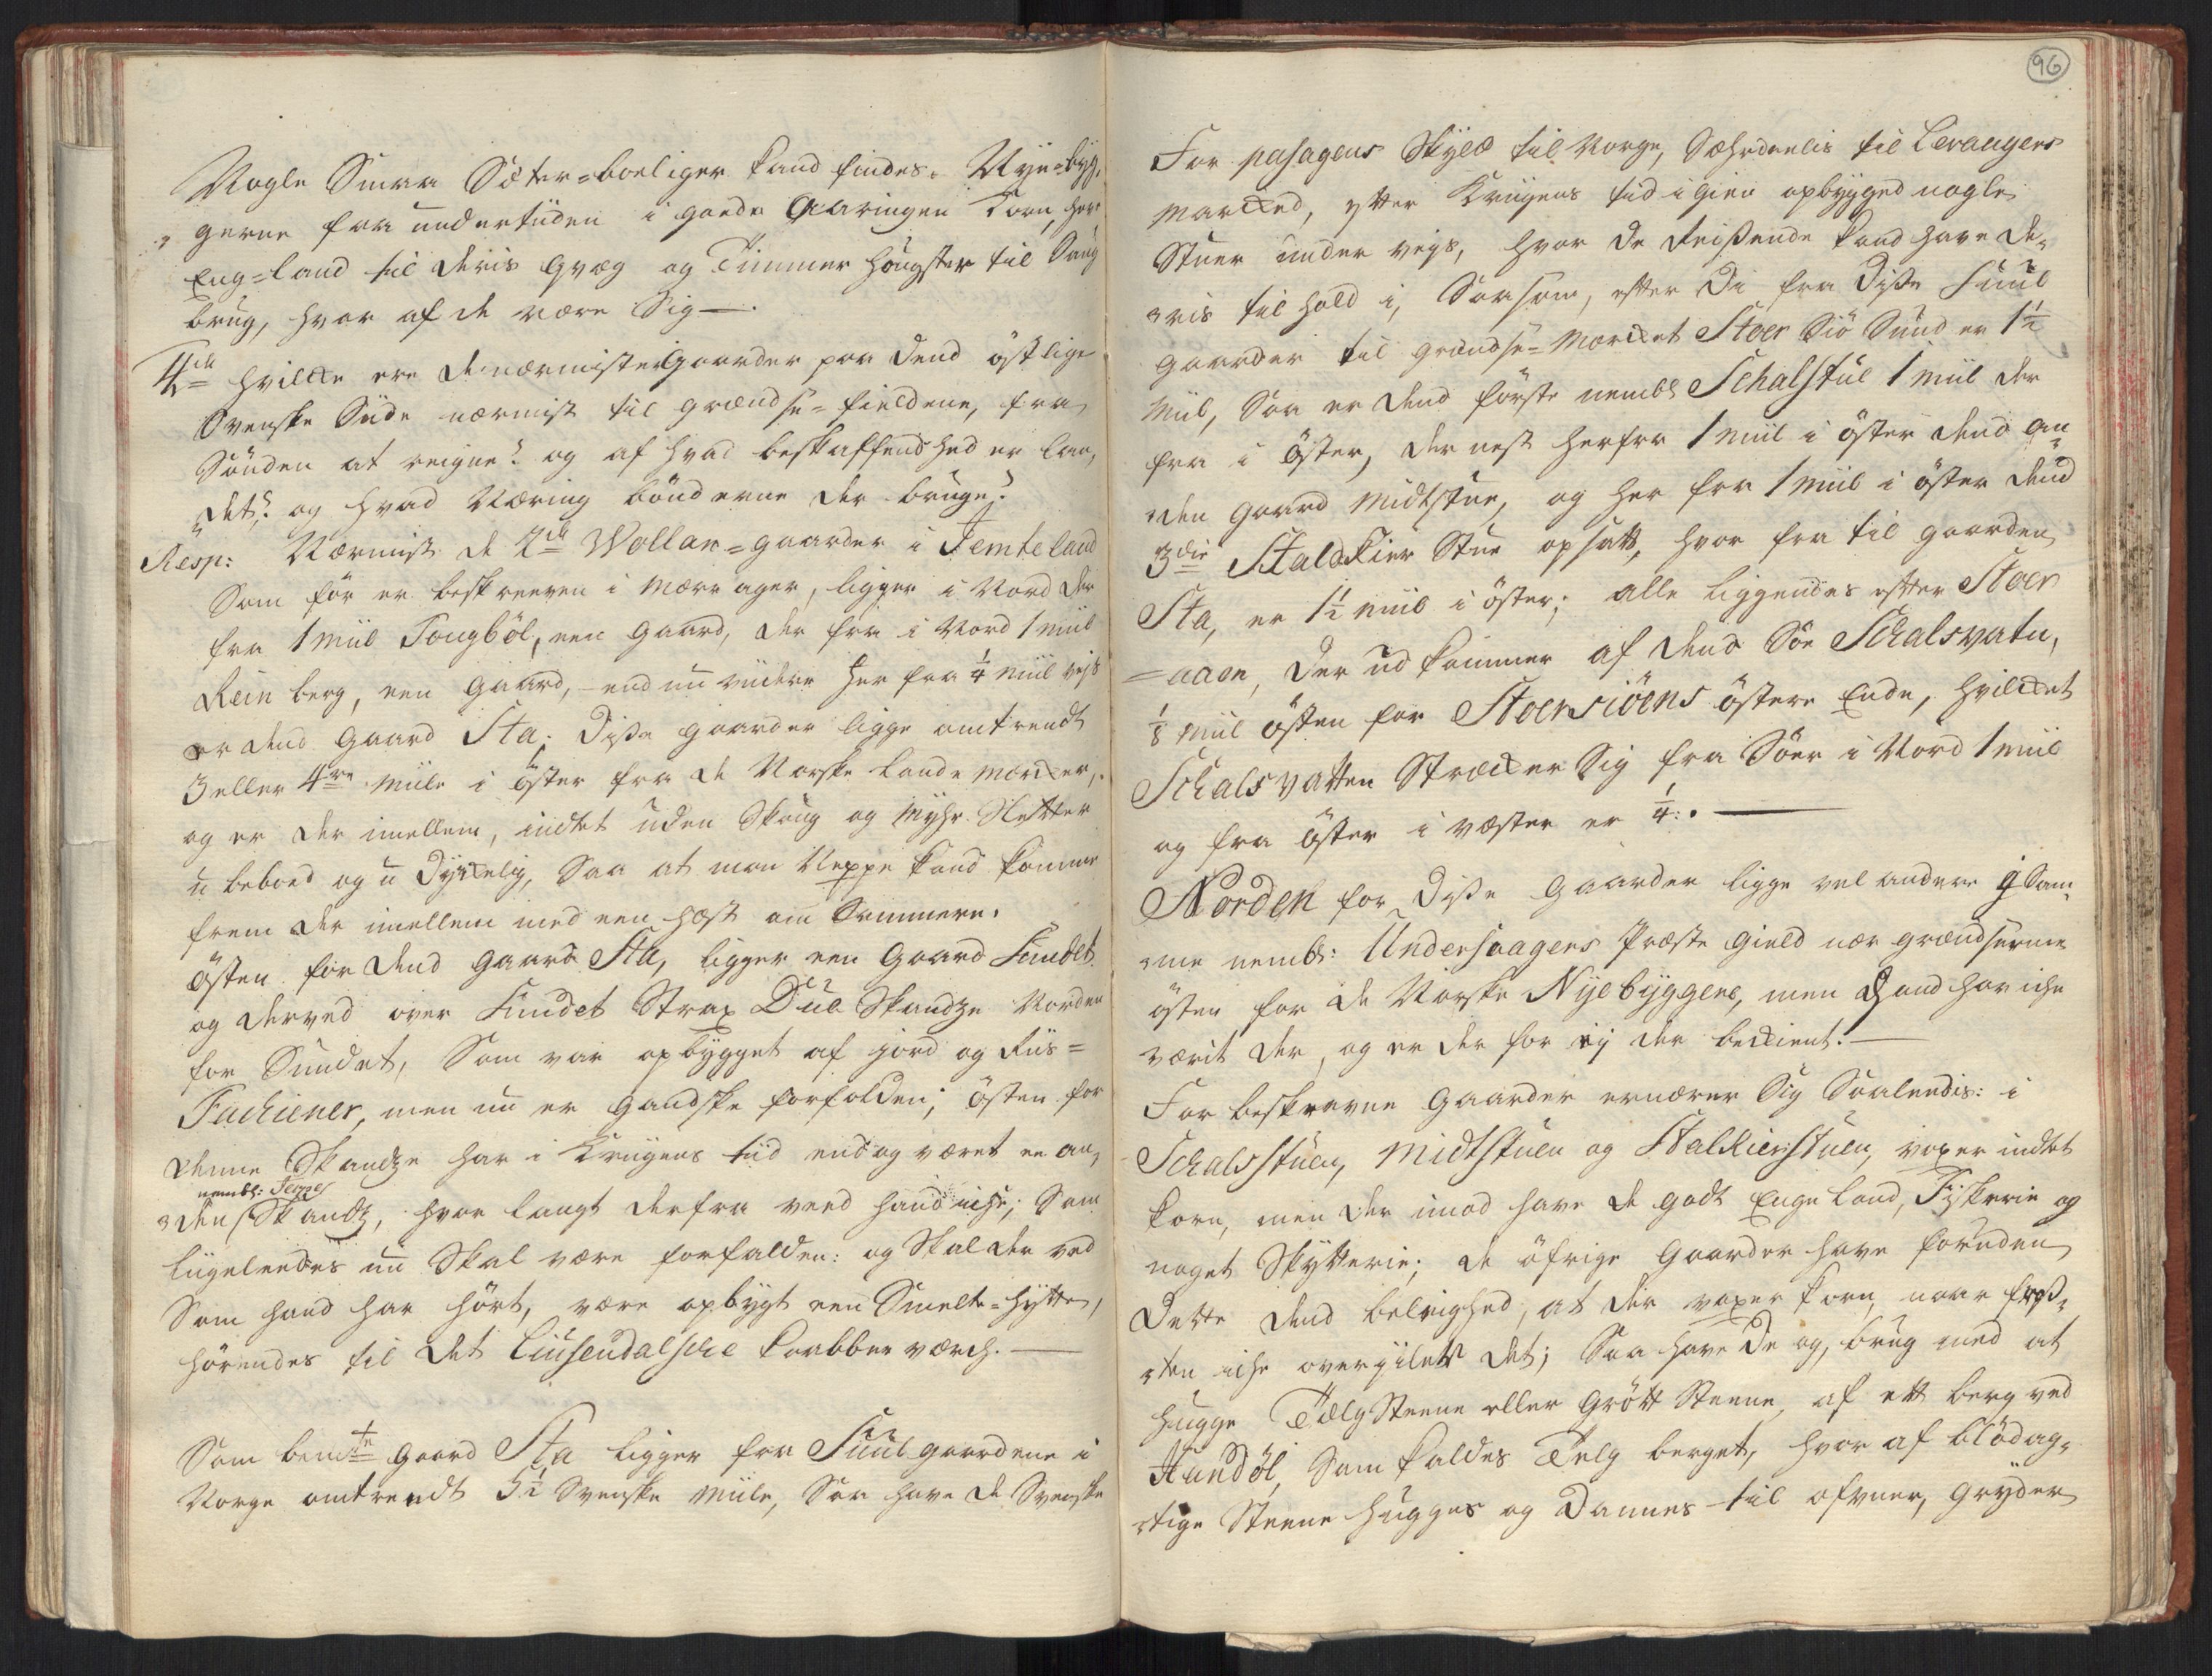 Nogle Smaa Sæter-boeliger kand findes. Nye-byg,
gerne faar undertiiden i goede Aaringer Korn, har
Eng-land til deris Qvæg og Timmer Hougster til Saug
brug, hvor af de nære Sig —.
4de hvilcke ere de nærmiste Gaarder paa dend östlige
Svenske Siide nærmist til grændse-fieldene, fra
Sönden at reigne? og af hvad beskaffendhed er lan,
det? og hvad Næring bönderne der bruge?
Resp: Nærmist de 2de Wollan-gaarder i Jemteland
Som för er beskreeven i Mæraager, ligger i Nord der
fra 1 Miil Tougböl, een gaard, der fra i Nord 1 Miil
Rein berg, een gaard, - end nu viidere her fra 1/4 Miil vejs
er dend gaard Sta; Disse gaarder ligge omtrendt
3 eller 4re Miile i öster fra de Norske Lande mercker,
og er der imellem, indtet uden Skoug og Myhr Sletter
u beboed og u dyrckelig, Saa at man Neppe kand komme
frem der imellem med een Hest om Sommeren.
Östen for dend gaard Sta, ligger een gaard Sundet
og derved over Sundet Strax Duve Skandze Norden
for Sundet, Som var opbygget af jord og Riis=
Fachiener, men nu er gandske forfalden; östen for
denne Skandze har i Kriigens tiid endog været en an,
nembl: Jerpe
den Skandz, hvor langt derfra veed hand iche; Som
liigeleedes nu Skal være forfalden: og Skal der ved
Som hand har hört, være opbygt een Smelte-hytte,
hörendes til det Liusendalsche Kaabber værch. —
Som bemte gaard Sta ligger fra Suul gaardene i
Norge omtrendt 5 1/2 Svenske Miile, Saa have de Svenske
96
For pasagens Skyld til Norge, Særdeelis til Levangers
Marcked, efter Kriigens tid igien opbygged nogle
Stuer under vejs, hvor de Reissende kand have de,
ris tilhold i, Saasom, efter Di fra disse Suul
gaarder til grændse-Mercket Stoer Siö Sund er 1 1/2
Miil, Saa er dend förste nembl Schalstue 1 Miil der
fra i Öster, der nest herfra 1 Miil i öster dend an
den gaard Midtstue, og her fra 1 Miil i öster dend
3die Stalkier Stue opsatt, hvor fra til gaarden
Sta, er 1 1/2 Miil i öster; alle liggendes efter Stoer
=aaen, der ud kommer af dend Söe Schalsvatn,
1/8 Miil östen for Stoersiöens östere Ende, hvilcket
Schalsvatten Strecker Sig fra Söer i Nord 1 Miil
og fra Öster i væster er 1/4. —
Norden for disse Gaarder ligge vel andere i Sam,
me nembl: Undersaagers Præste gield nær grændserne
östen for de Norske Nyebyggene, men hand har iche
værit der, og er der for ej der beckient. —
For beskrevne Gaarder ernærer Sig Saaleedis: i
Schalsstuen, Midtstuen og Stalkierstuen, voxer indtet
Korn, men der imod have de godt Enge Land, Fiskerie og
noget Skytterie; de öfrige Gaarder have foruden
Dette dend beleighed, at der voxer Korn, naar Fros,
ten iche overjiler det; Saa have de og, brug med at
hugge Tælg Steene eller Gröt Steene, af ett berg ved
Handöl, Som kaldes Telg berget, hvor af blödag,
tige Steene hugges og dannes til ofvner, Gryder